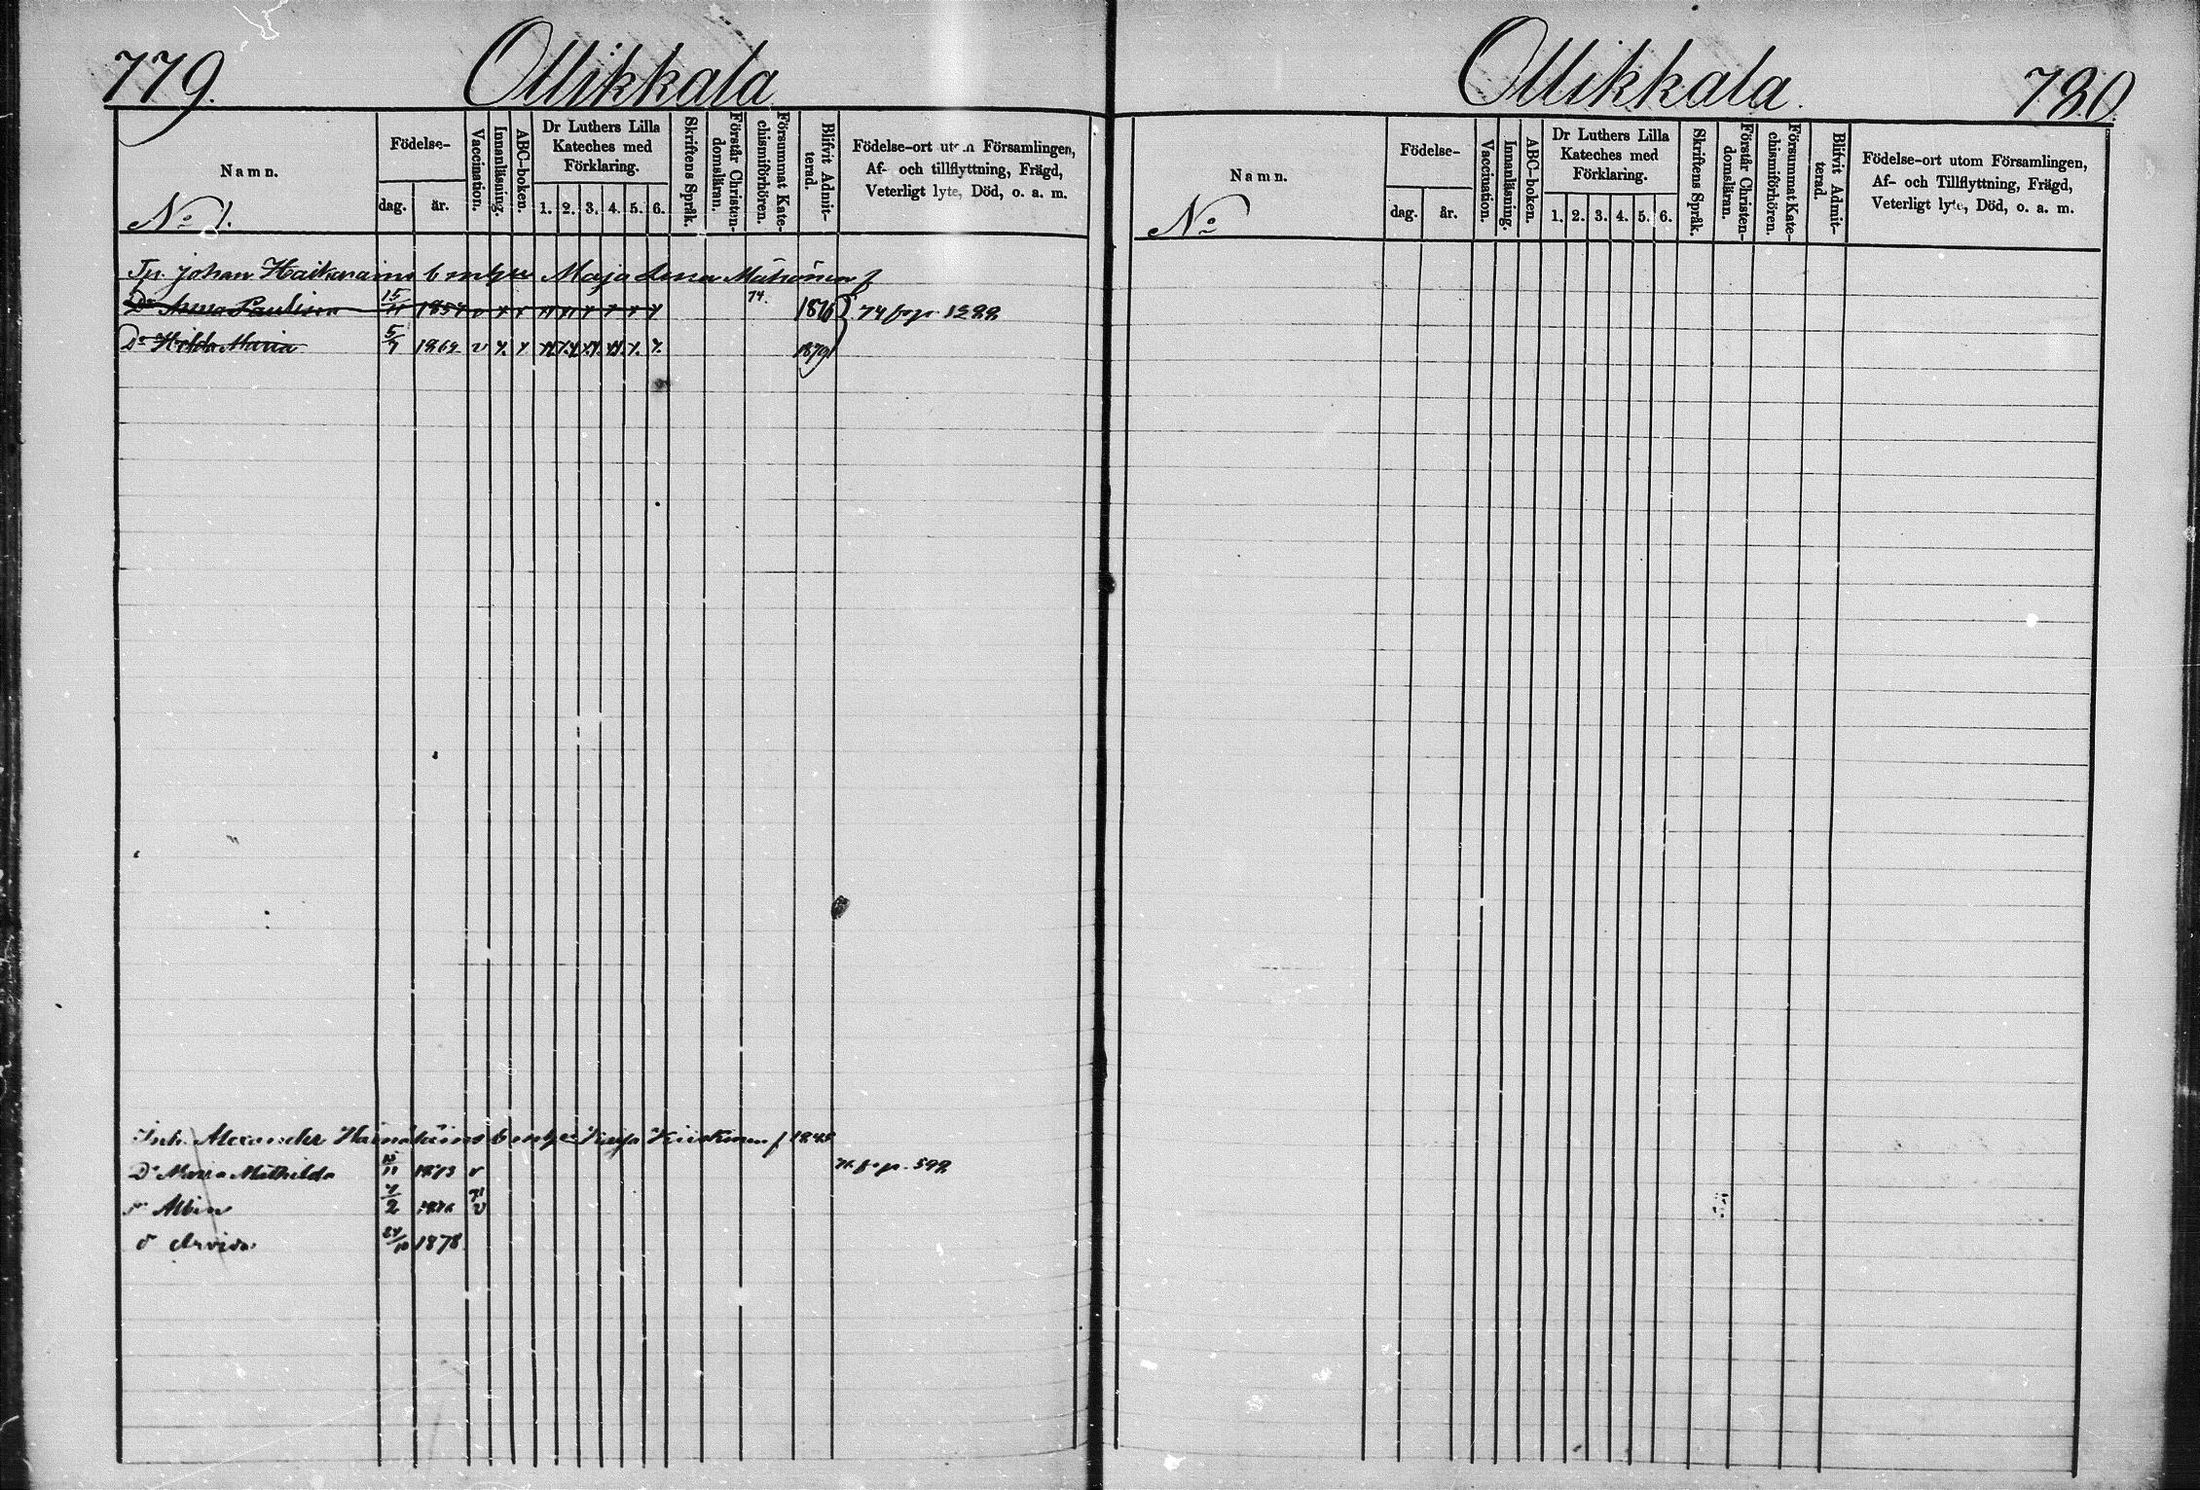 779. Ollikkala
Namn.
No 1.
Födelse-
dag. år.
Vaccination.
Innanläsning.
ABC-boken.
Dr Luthers Lilla
Kateches med
Förklaring.
1. 2. 3. 4. 5. 6.
Skriftens Språk.
Förstår Christen-
domsläran.
Försummat Kate-
chismiförhören.
Blifvit Admit-
terad.
Födelse-ort utom Församlingen,
Af- och tillflyttning, Frägd,
Veterligt lyte, Död, o. a. m.
Johan Maja Lena
Dr Anna 15/11 1854 v 74. 1876
Dr Hilda Maria 5/9 1862 v 1879
Alexander Kaisa
Dr Maria Mathilda 1873 v
Albin 7/2
Arvid 24/10 1878
Ollikkala. 780
Namn.
No
Födelse-
dag. år.
Vaccination.
Innanläsning.
ABC-boken.
Dr Luthers Lilla
Kateches med
Förklaring.
1. 2. 3. 4. 5. 6.
Skriftens Språk.
Förstår Christen-
domsläran.
Försummat Kate-
chismiförhören.
Blifvit Admit-
terad.
Födelse-ort utom Församlingen,
Af- och Tillflyttning, Frägd,
Veterligt lyte, Död, o. a. m.